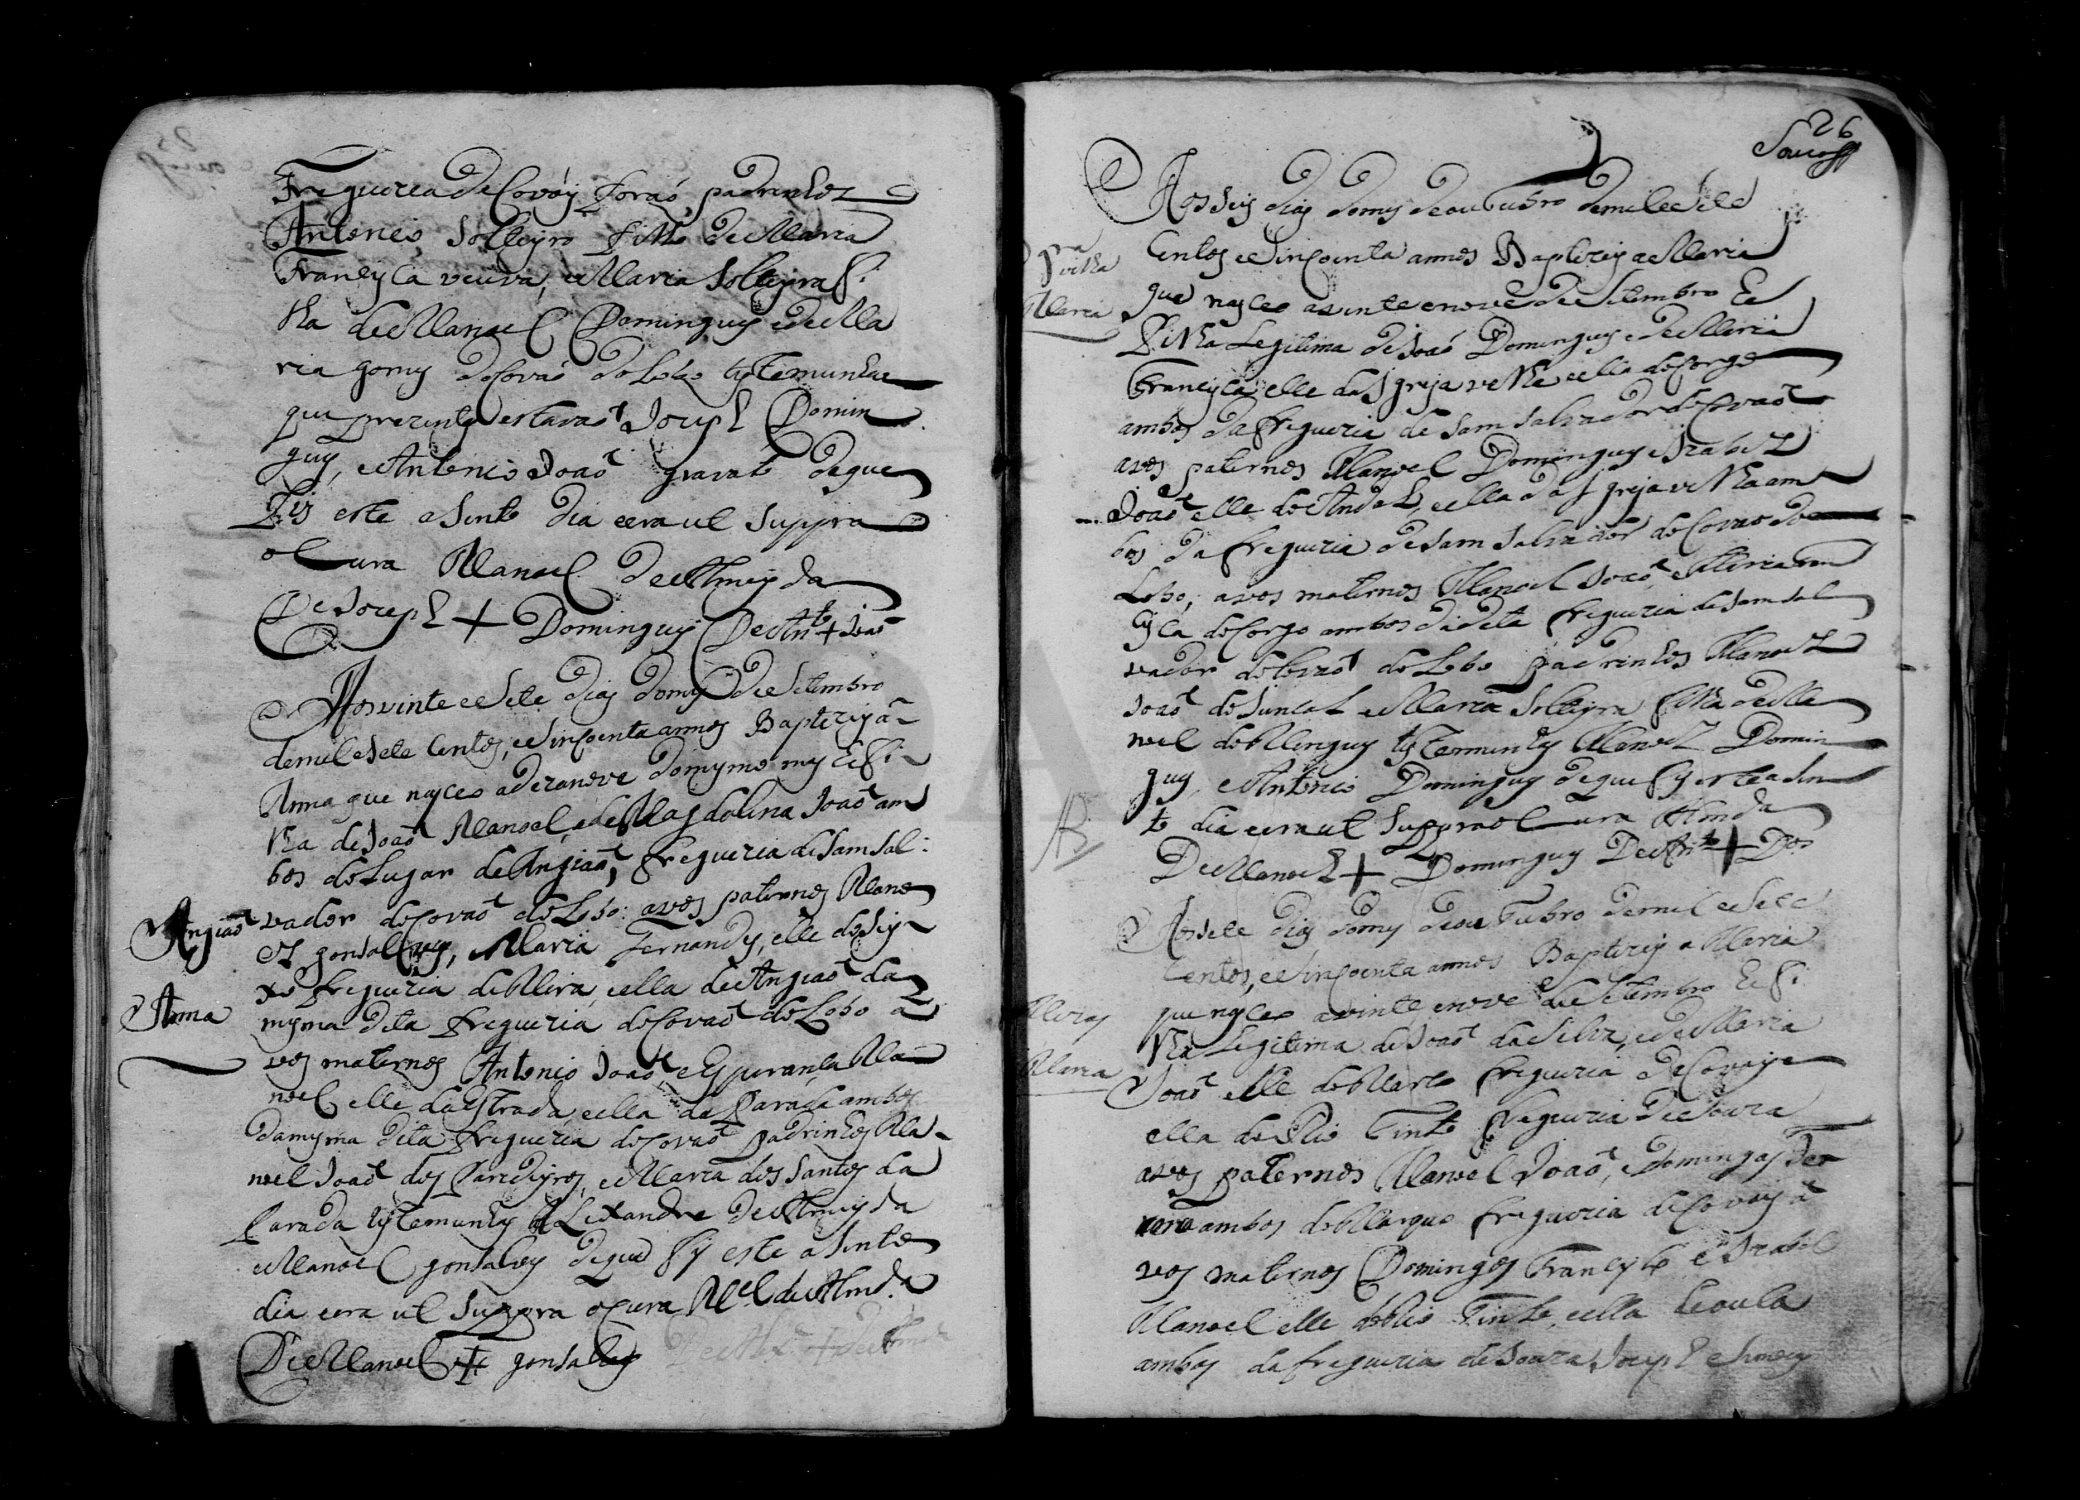 Freguezia de Covóy foraó, padrinhoz
Antonio Solteyro filho de Maria
Francysca veuva, e Maria Solteyra fi
lha de Manoel Domingues e de Ma
ria gomes do Covaó do Lobo testemunhas
que prezentes estavaó Joseph Domin
gues, e Antonio Joaó gravato de que
fis este asento dia e era ut suppra
o Cura Manoel de Almeyda
De Joseph + Domingues De Ant.º + Joaó
Aos vinte e sete dias do mes de Setembro
de mil e sete centos, e sincoenta annos Baptizey a
Anna que nasceo a dezanove do mesmo mes he fi
lha de Joaó Manoel, e de Magdalina Joaó am
bos do Lugar de Angiaó, freguezia de Sam Sal
vador do Covaó do Lobo: avos paternos Mano
el gonsalves, e Maria Fernandes, elle do Sey
xo freguezia de Mira, e ella de Angiaó da
mesma dita freguezia do Covaó do Lobo a
vos maternos Antonio Joaó e Esperança Ma
noel elle da Estrada, e ella da Parada ambos
da mesma dita freguezia do Covaó padrinhos Ma
noel Joaó dos Pardeyros, e Maria dos Santos da
Parada testemunhas Alexandre de Almeyda
e Manoel gonsalves de que fis este asento
dia e era ut suppra o Cura M.el de Almd.a
De Manoel + gonsalves
Angiaó
Anna
26
Aos seis dias do mes de outubro de mil e sete
centos e sincoenta annos Baptizey a Maria
que nasceo a vinte e nove de Setembro he
filha Legitima de Joaó Domingues e de Maria
Francysca, elle da Igreja velha e ella do Corgo
ambos da freguezia de Sam Salvador do Covaó
avos paternos Manoel Domingues e Izabel
Joaó elle de Andal, e ella da Igreja velha am
bos da freguezia de Sam Salvador do Covaó do
Lobo, avos maternos Manoel Joaó, e Maria Fran
cysca do Corgo ambos da dita freguezia de Sam Sal
vador do Covaó do Lobo padrinhos Manoel
Joaó do Juncal e Maria Solteyra filha de Ma
noel Domingues testemunhas Manoel Domin
gues, e Antonio Domingues de que fis este asen
to dia e era ut suppra o Cura Almda
De Manoel + Domingues De Ant.º + Dos
Aos sete dias do mes de outubro de mil e sete
centos, e sincoenta annos Baptizey a Maria
que nasceo a vinte e nove de Setembro he fi
lha Legitima de Joaó da Silva, e de Maria
Joaó elle do Marco freguezia de Covoys e
ella do Rio Tinto freguezia de Souza
avos paternos Manoel Joaó, e Domingas
ambos do Marquo freguezia de Covoys a
vos maternos Domingos Francysco e Izabel
Manoel elle do Rio Tinto, e ella
ambos da freguezia de Souza Joseph
Igra
velha
Maria
AB
Maria